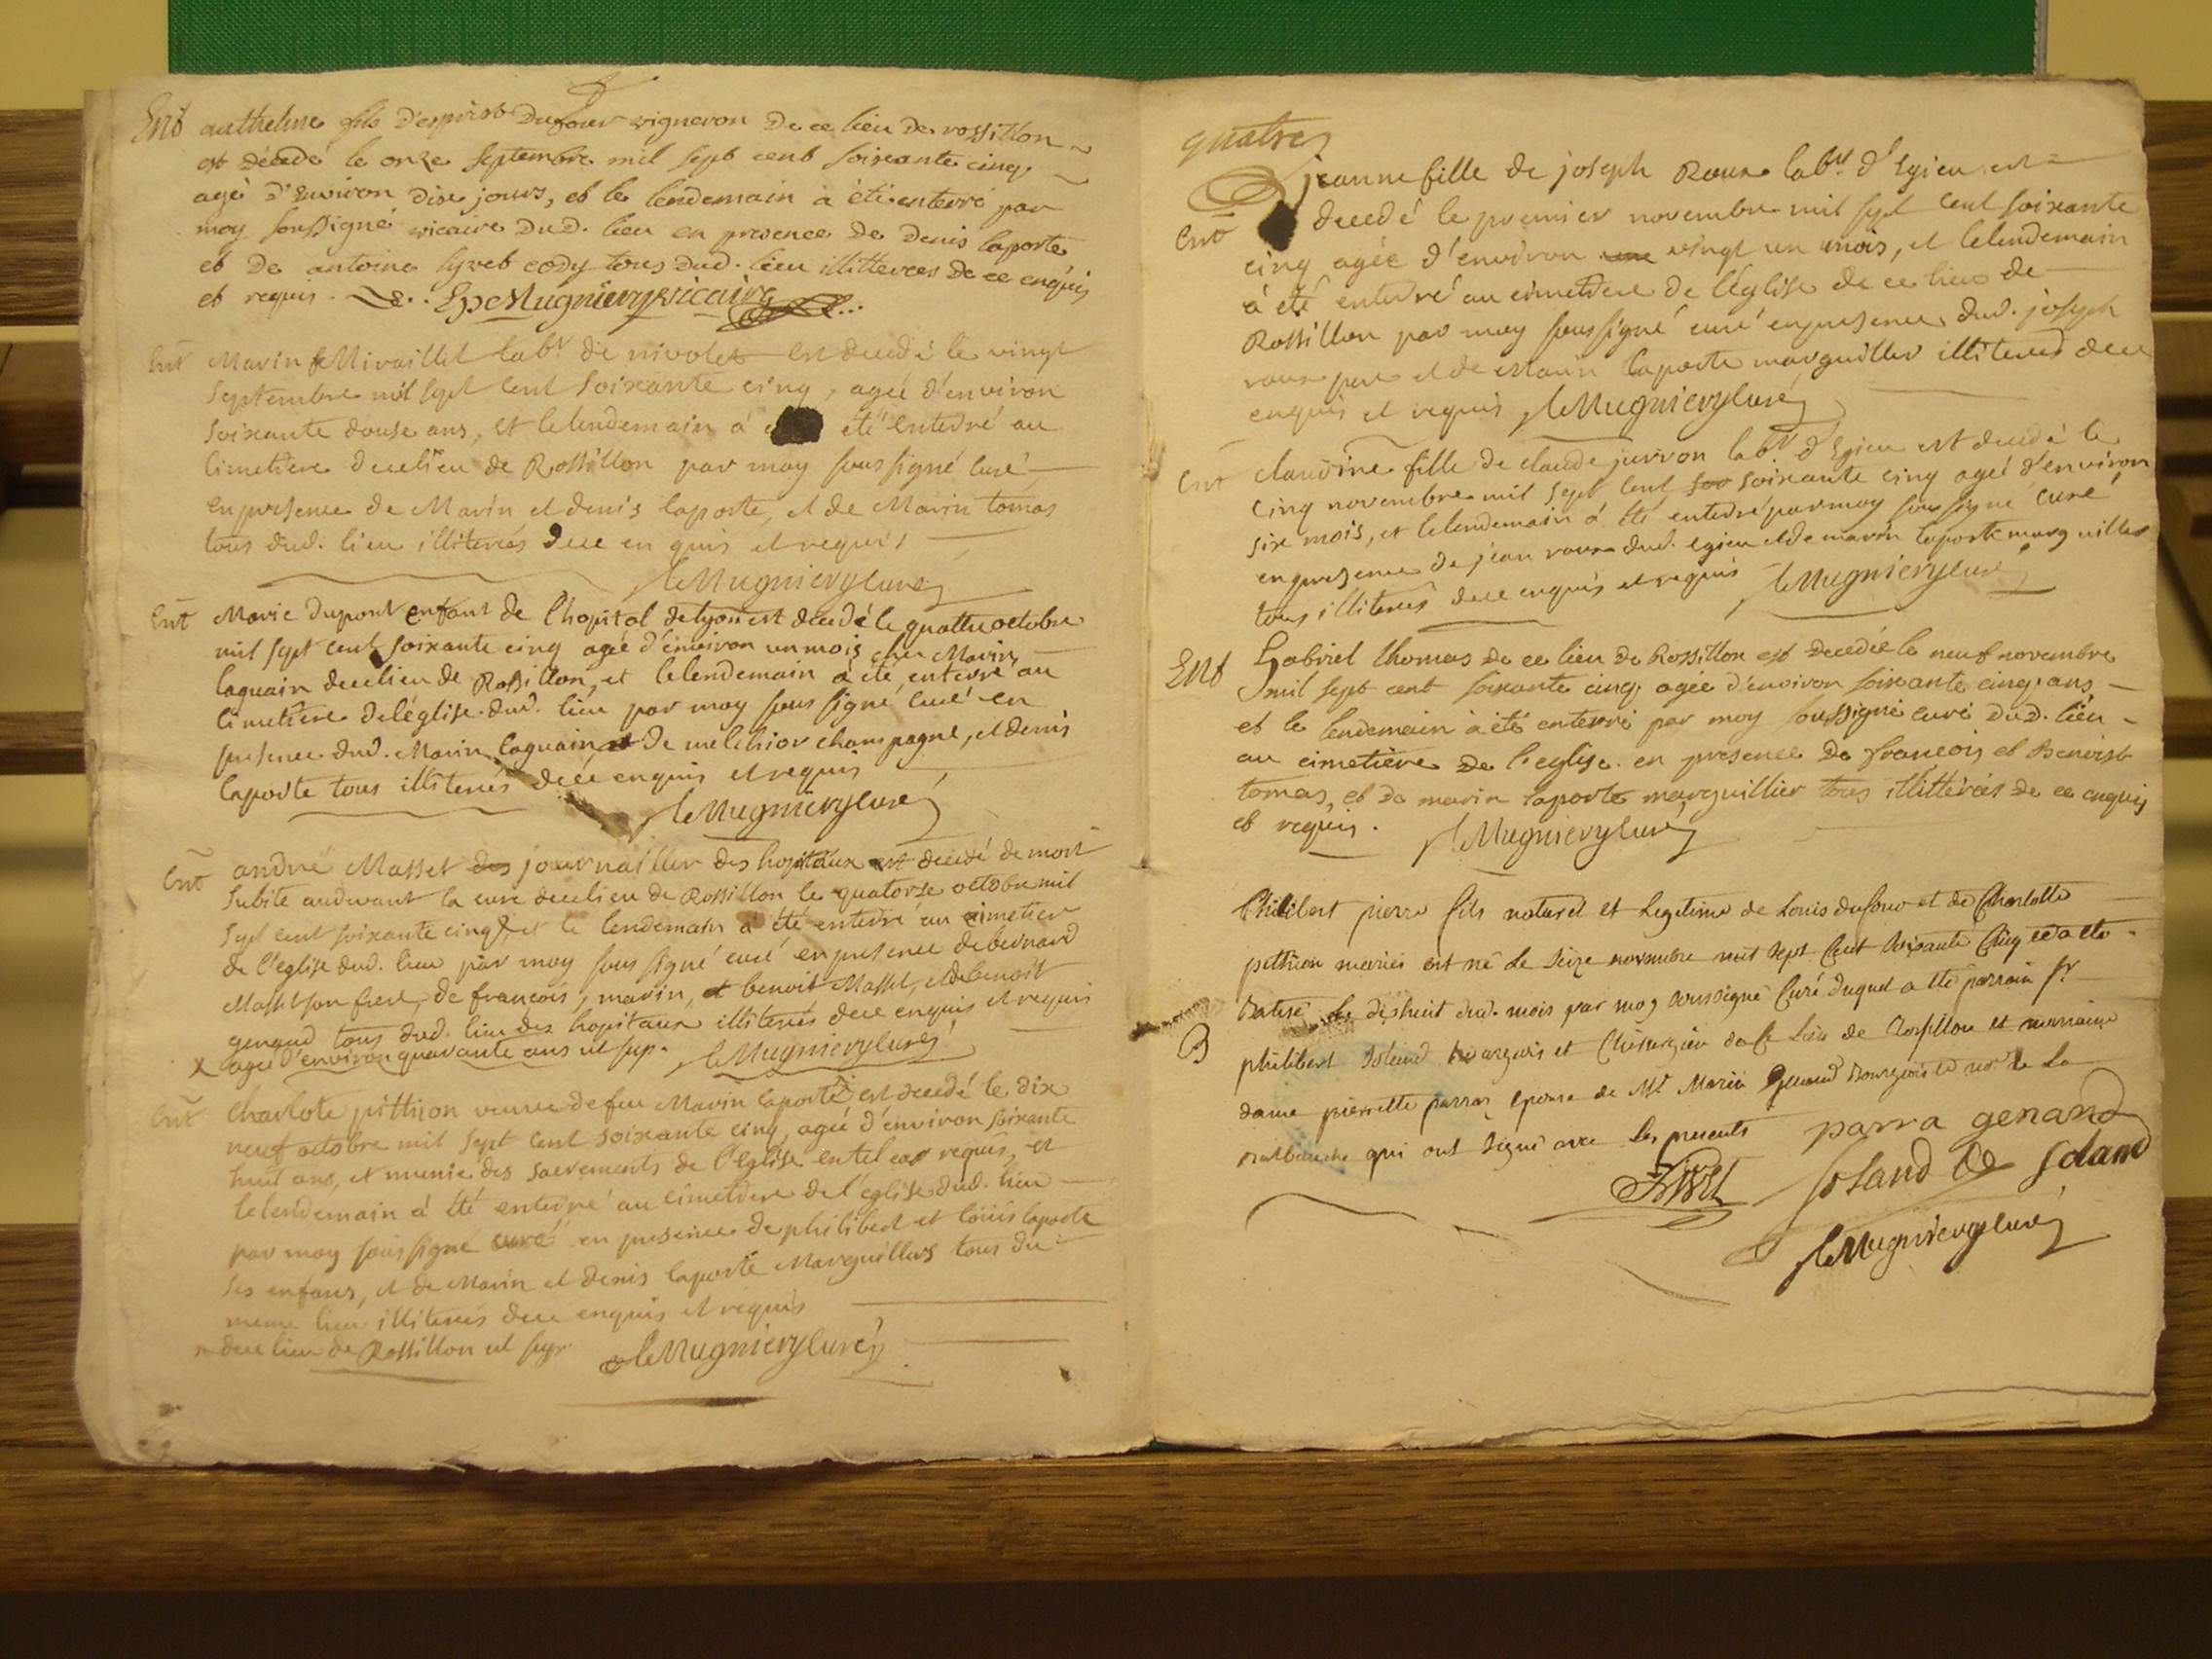 Ent anthelme fils d'esprist Dufour vigneron De ce lieu de rossillon
est décedé le onze septembre mil sept cent soixante cinq
agé d'Environ dix jours, et le lendemain à été enterré par
moy soussigné vicaire Dud. lieu en presence de Denis laporte
et De antoine tous Dud. lieu illitterees de ce enquis
et requis. Mugniery vicaire
Ent Marin Miraillet labr. de nivolet est decedé le vingt
septembre mil sept cent soixante cinq, agée d'environ
soixante douse ans, et le lendemain à été enterré au
cimetiere de ce lieu de Rossillon par moy sous signé curé
en presence de Marin et denis laporte, et de Marin tomas
tous dud. lieu illiterés de ce enquis et requis
Mugniery curé
Ent Marie Dupont enfant de l'hopital de lyon est decedé le quattre octobre
mil sept cent soixante cinq agée d'environ un mois chez Marin
laguain de ce lieu de Rossillon, et le lendemain à été enterré au
cimetiere de l'église dud. lieu par moy sous signé curé en
presence dud. Marin laguain, de melchior champagne, et denis
laporte tous illiterés de ce enquis et requis
Mugniery curé
Ent andré Masset des journaillier des hopitaux est decedé de mort
subite audevant la cure de ce lieu de Rossillon le quatorse octobre mil
sept cent soixante cinq, et le lendemain à été enterré au cimetier
de l'eglise dud. lieu par moy sous signé curé en presence de bernard
Masset son frere, de francois, marin, et benoit Masset, et de benoit
genaud tous dud. lieu des hopitaux illiterés de ce enquis et requis
x agé d'environ quarante ans ut sup. Mugniery curé
Ent Charlote pittion veuve de feu Marin laporte est decedé le dix
neuf octobre mil sept cent soixante cinq, agée d'environ soixante
huit ans, et munie des sacrements de l'Eglise en tel cas requis, et
le lendemain à été enterré au cimetiere de l'église dud. lieu
par moy sous signé curé en presence de philibert et loüis laporte
ses enfans, et de Marin et denis laporte Marguilliers tous du
meme lieu illiterés de ce enquis et requis
de ce lieu de Rossillon ut sup. Mugniery curé
quatre
jeanne fille de joseph Roux labr. d'Egieu est
Ent decedé le premier novembre mil sept cent soixante
cinq agée d'environ une vingt un mois, et le lendemain
à été enterré au cimetiere de l'Eglise de ce lieu de
Rossillon par moy sous signé curé en presence dud. joseph
roux pere et de Marin laporte marguillier illiterés de ce
enquis et requis Mugniery curé
Ent claudine fille de claude jurron labr. d'Egieu est decedé le
cinq novembre mil sept cent soo soixante cinq agée d'environ
six mois, et le lendemain à été enterré par moy sous signé curé
en presence de jean roux dud. egieu et de marin laporte marguillier
tous illiterés de ce enquis et requis Mugniery curé
Ent Gabriel thomas de ce lieu de Rossillon est decedée le neuf novembre
mil sept cent soixante cinq, agée d'environ soixante cinq ans,
et le lendemain à été enterré par moy soussigné curé Dud. lieu
au cimetiere de l'eglise. en presence de françois et Benoist
tomas, et de marin laporte marguillier tous illitterés de ce enquis
et requis. Mugniery curé
Philibert pierre fils naturel et Legitime de Louis dufour et de Charlotte
pitthion mariés est né Le seize novembre mil sept Cent soixante Cinq et a ete
Batisé Le dixhuit dud. mois par moy soussigné Curé duquel a ete parrain sr.
B philibert Soland bourgeois et Chirurgien de Ce Lieu de Rossillon et marraine
dame pierrette parraz epouse de Mr. Marin Genand Bourgeois et de La
qui ont signé avec Les presents parra genand
soland soland
Mugniery curé